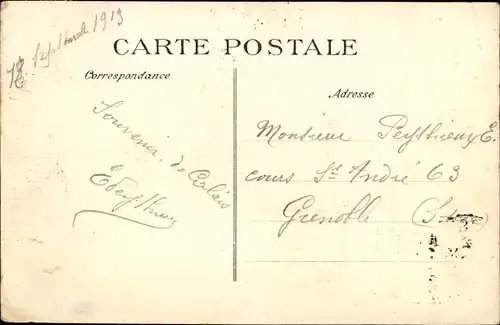 18 Septembre 1913
CARTE POSTALE
Correspondance
Souvenir de Calais
Adresse
Monsieur Peythieux E.
cours St André 63
Grenoble (Isère)